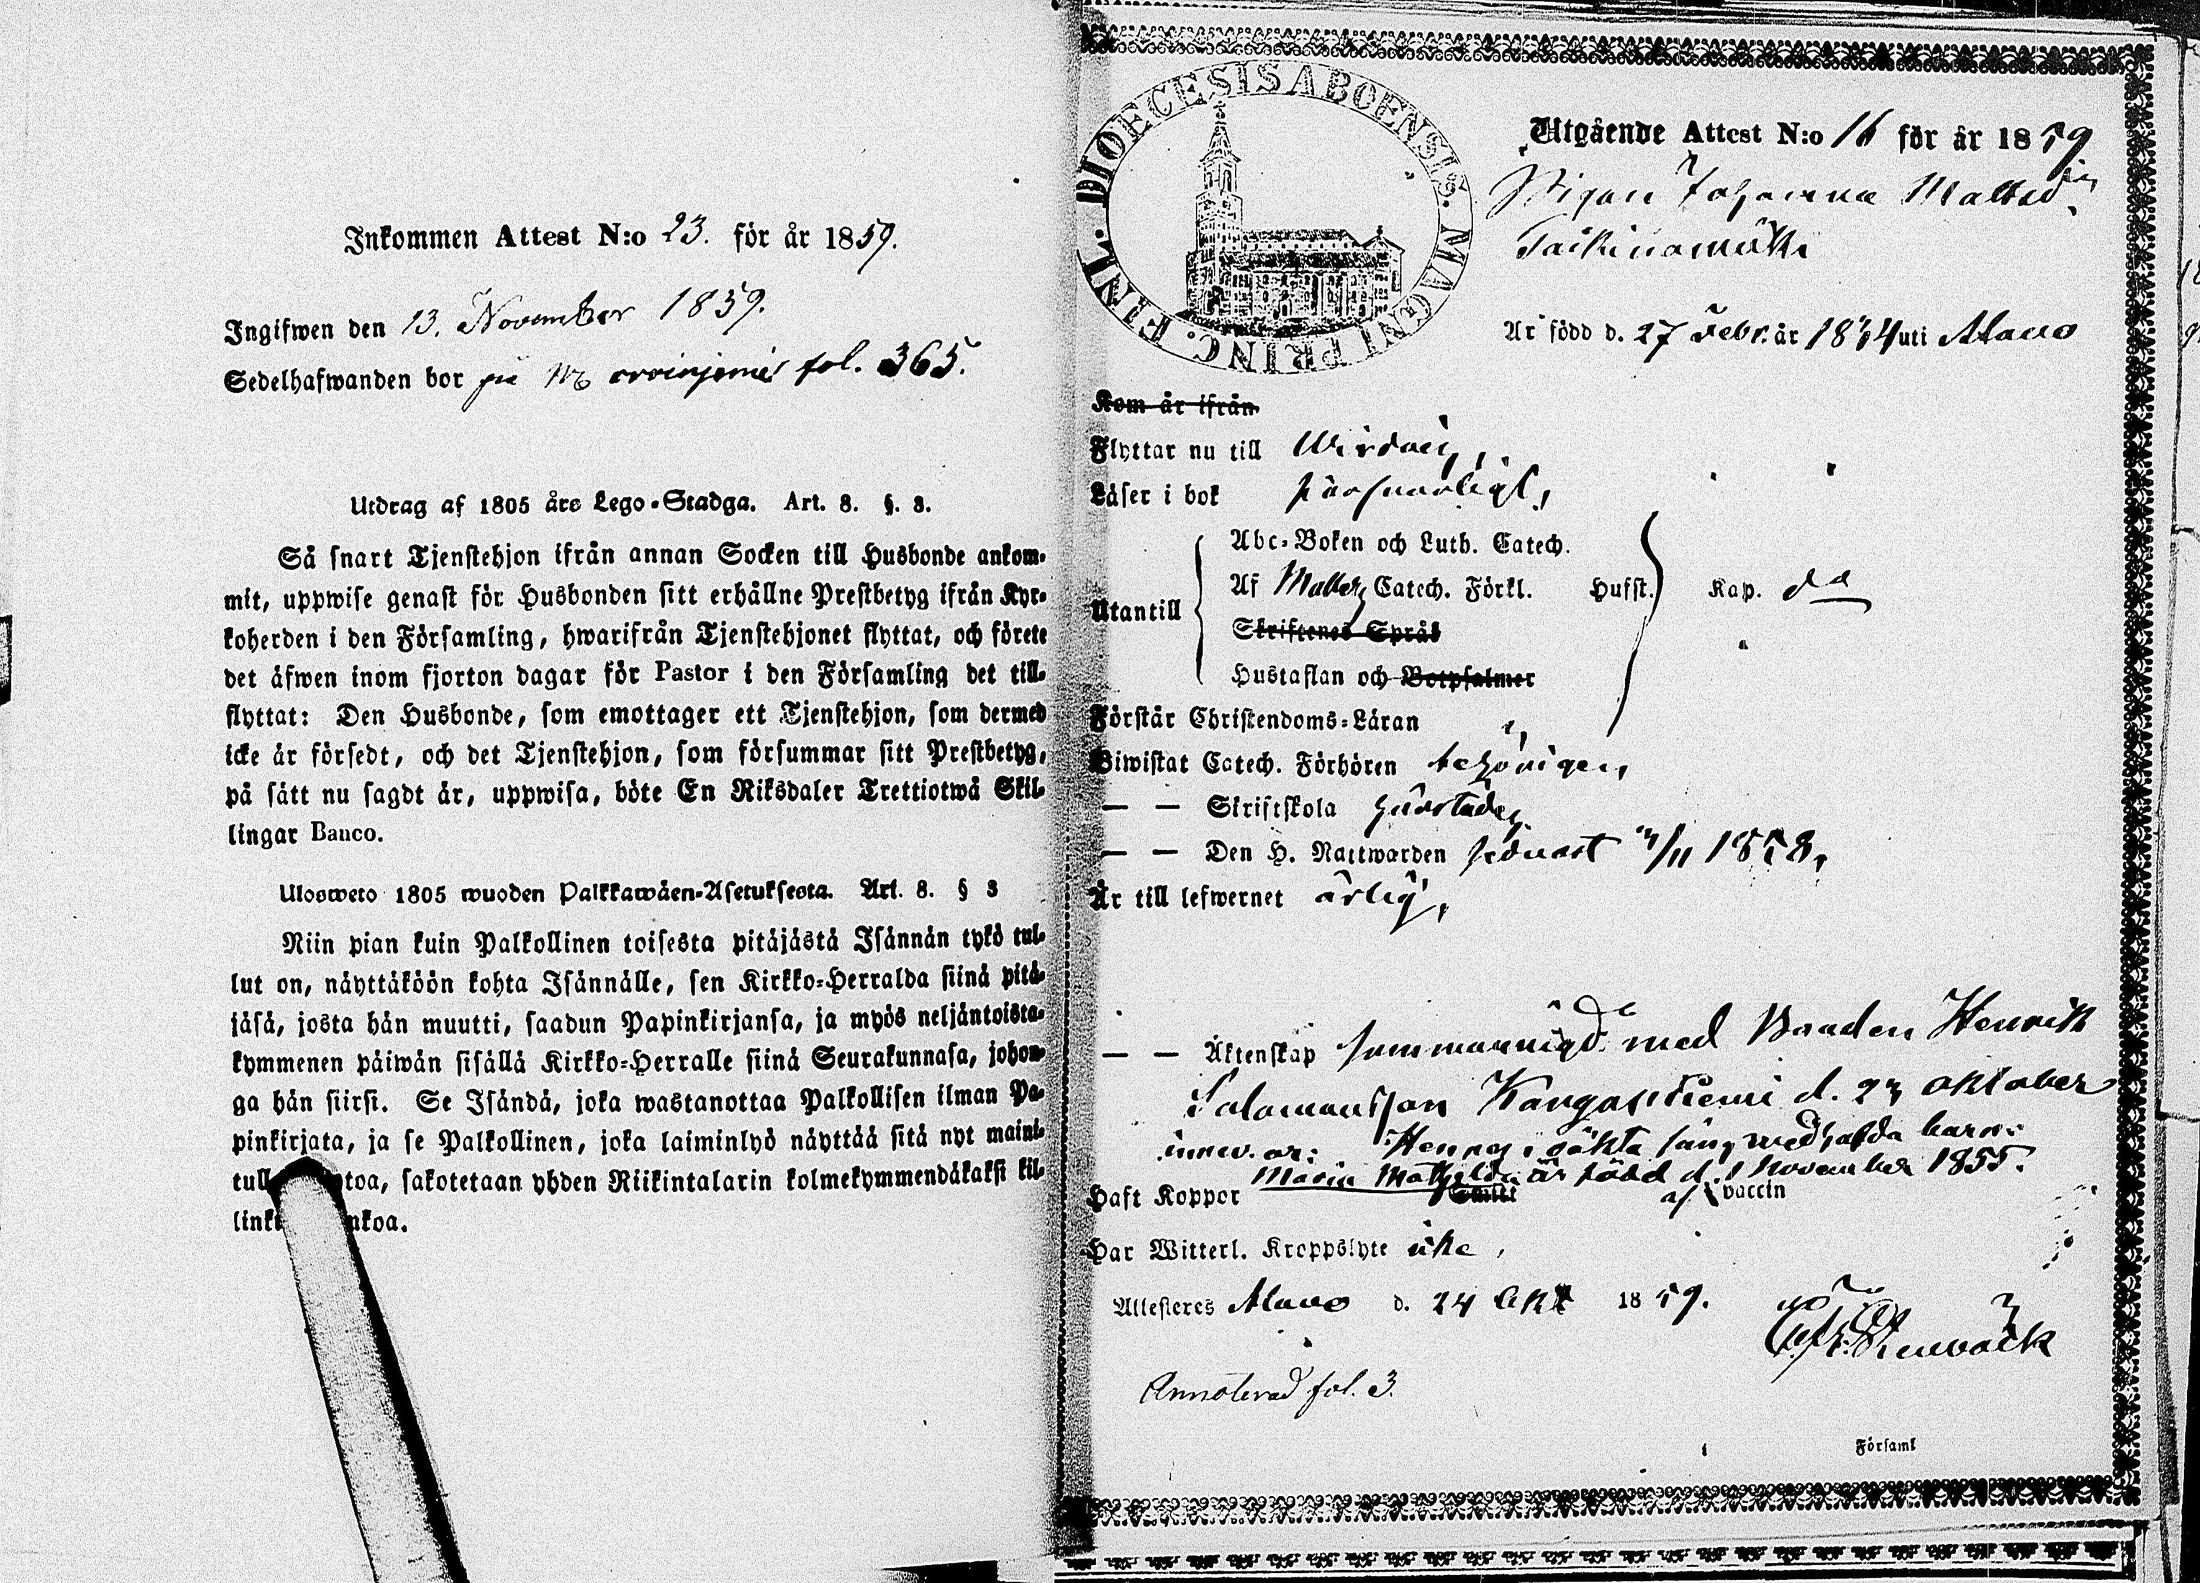 Inkommen Attest N:o 23. för år 1859.
Ingifwen den 13. November 1859.
Sedelhafwanden bor på fol. 365.
Utdrag af 1805 års Lego-Stadga. Art. 8. §. 3.
Så snart Tjenstehjon ifrån annan Socken till Husbonde ankom-
mit, uppwise genast för Husbonden sitt erhållne Prestbetyg ifrån Kyr-
koherden i den Församling, hwarifrån Tjenstehjonet flyttat, och förete
det äfwen inom fjorton dagar för Pastor i den Församling det till-
flyttat: Den Husbonde, som emottager ett Tjenstehjon, som dermed
icke är försedt, och det Tjenstehjon, som försummar sitt Prestbetyg,
på sätt nu sagdt är, uppwisa, böte En Riksdaler Trettiotwå Skil-
lingar Banco.
Ulosweto 1805 wuoden Palkkawäen-Asetuksesta. Art. 8. § 3
Niin pian kuin Palkollinen toisesta pitäjästä Isännän tykö tul-
lut on, näyttäköön kohta Isännälle, sen Kirkko-Herralda siinä pitä-
jäsä, josta hän muutti, saadun Papinkirjansa, ja myös neljäntoista-
kymmenen päiwän sisällä Kirkko-Herralle siinä Seurakunnasa, johon-
ga hän siirsi. Se Isändä, joka wastanottaa Palkollisen ilman Pa-
pinkirjata, ja se Palkollinen, joka laiminlyö näyttää sitä nyt maini-
tull toa, sakotetaan yhden Riikintalarin kolmekymmendäkaksi kil-
link nkoa.
FINL. DIOECESIS ABOENSIS. MAGNI PRINC.
Utgående Attest N:o 16 för år 1859
Pigan Johanna Mattsd:r
Taikinamäki
Är född d. 27 Febr. år 1834 uti Alavo
Kom år ifrån
Flyttar nu till Wirdois,
Läser i bok försvarligt,
Abc-Boken och Luth. Catech.
Utantill Af Catech. Förkl. Hufst. Kap. do
Skriftenes Språk
Hustaflan och Botpsalmer
Förstår Christendoms-Läran
Biwistat Catech. Förhören behörigen,
— — Skriftskola
— — Den H. Nattwarden senast /11 1858,
Är till lefwernet ärlig,
— — Äktenskap med Bonden Henrik
Salomonsson Kangasniemi d. 23 oktober
innev. år: Hennes i oäkta säng medhafda barn:
Maria Mathilda är född d. 1 November 1855.
Haft Koppor Smitt af vaccin
Har Witterl. Kroppslyte icke,
Attesteres Alavo d. 24 Okt 1859.
Annoterad fol. 3.
Församl